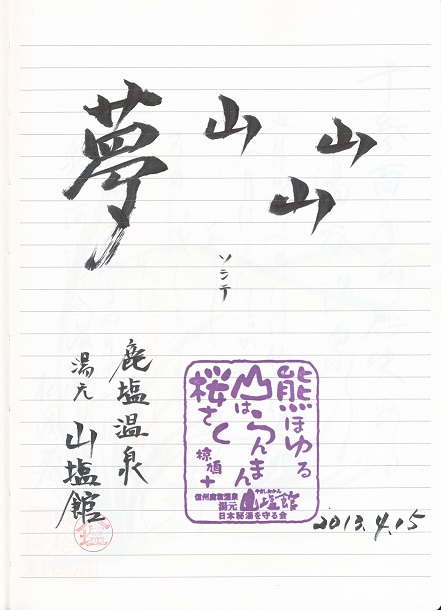 山
山
山
ソシテ
夢
鹿塩温泉
湯元 山塩館
熊ほゆる
山はらんまん
桜さく
椋鳩十
信州鹿塩温泉
やましおかん
湯元 山塩館
日本秘湯を守る会
2013.4.15